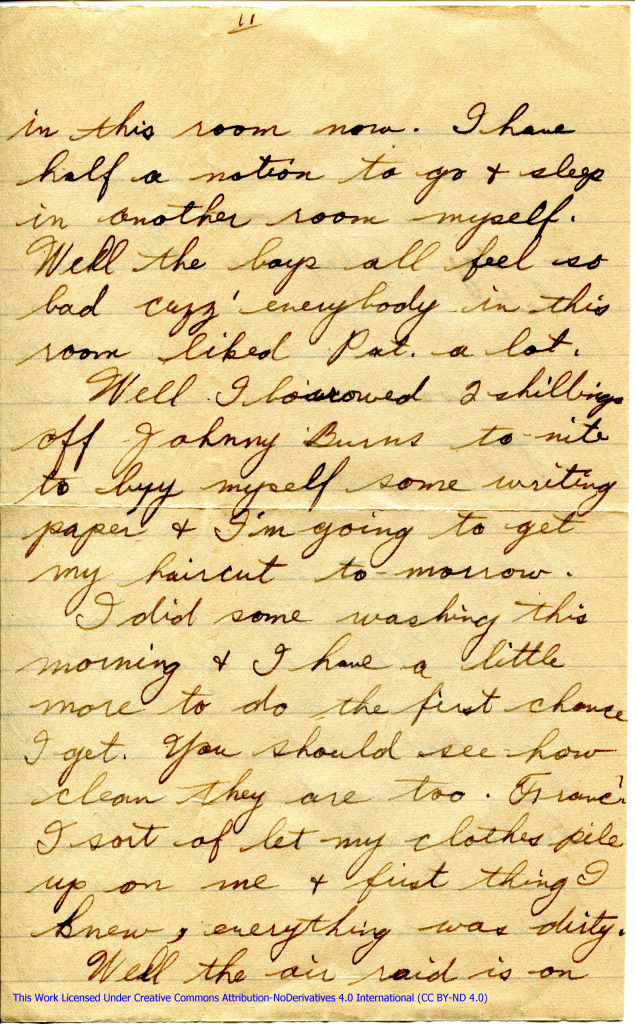 11
in this room now. I have
half a notion to go & sleep
in another room myself.
Well the boys all feel so
bad cuzz' everybody in this
room liked Pat. a lot.
Well I borrowed 2 shillings
off Johnny Burns to-nite
to buy myself some writing
paper & I'm going to get
my haircut to-morrow.
I did some washing this
morning & I have a little
more to do the first chance
I get. You should see how
clean they are too. Franc's
I sort of let my clothes pile
up on me & first thing I
knew, everything was dirty.
Well the air raid is on
This Work Licensed Under Creative Commons Attribution-NoDerivatives 4.0 International (CC BY-ND 4.0)